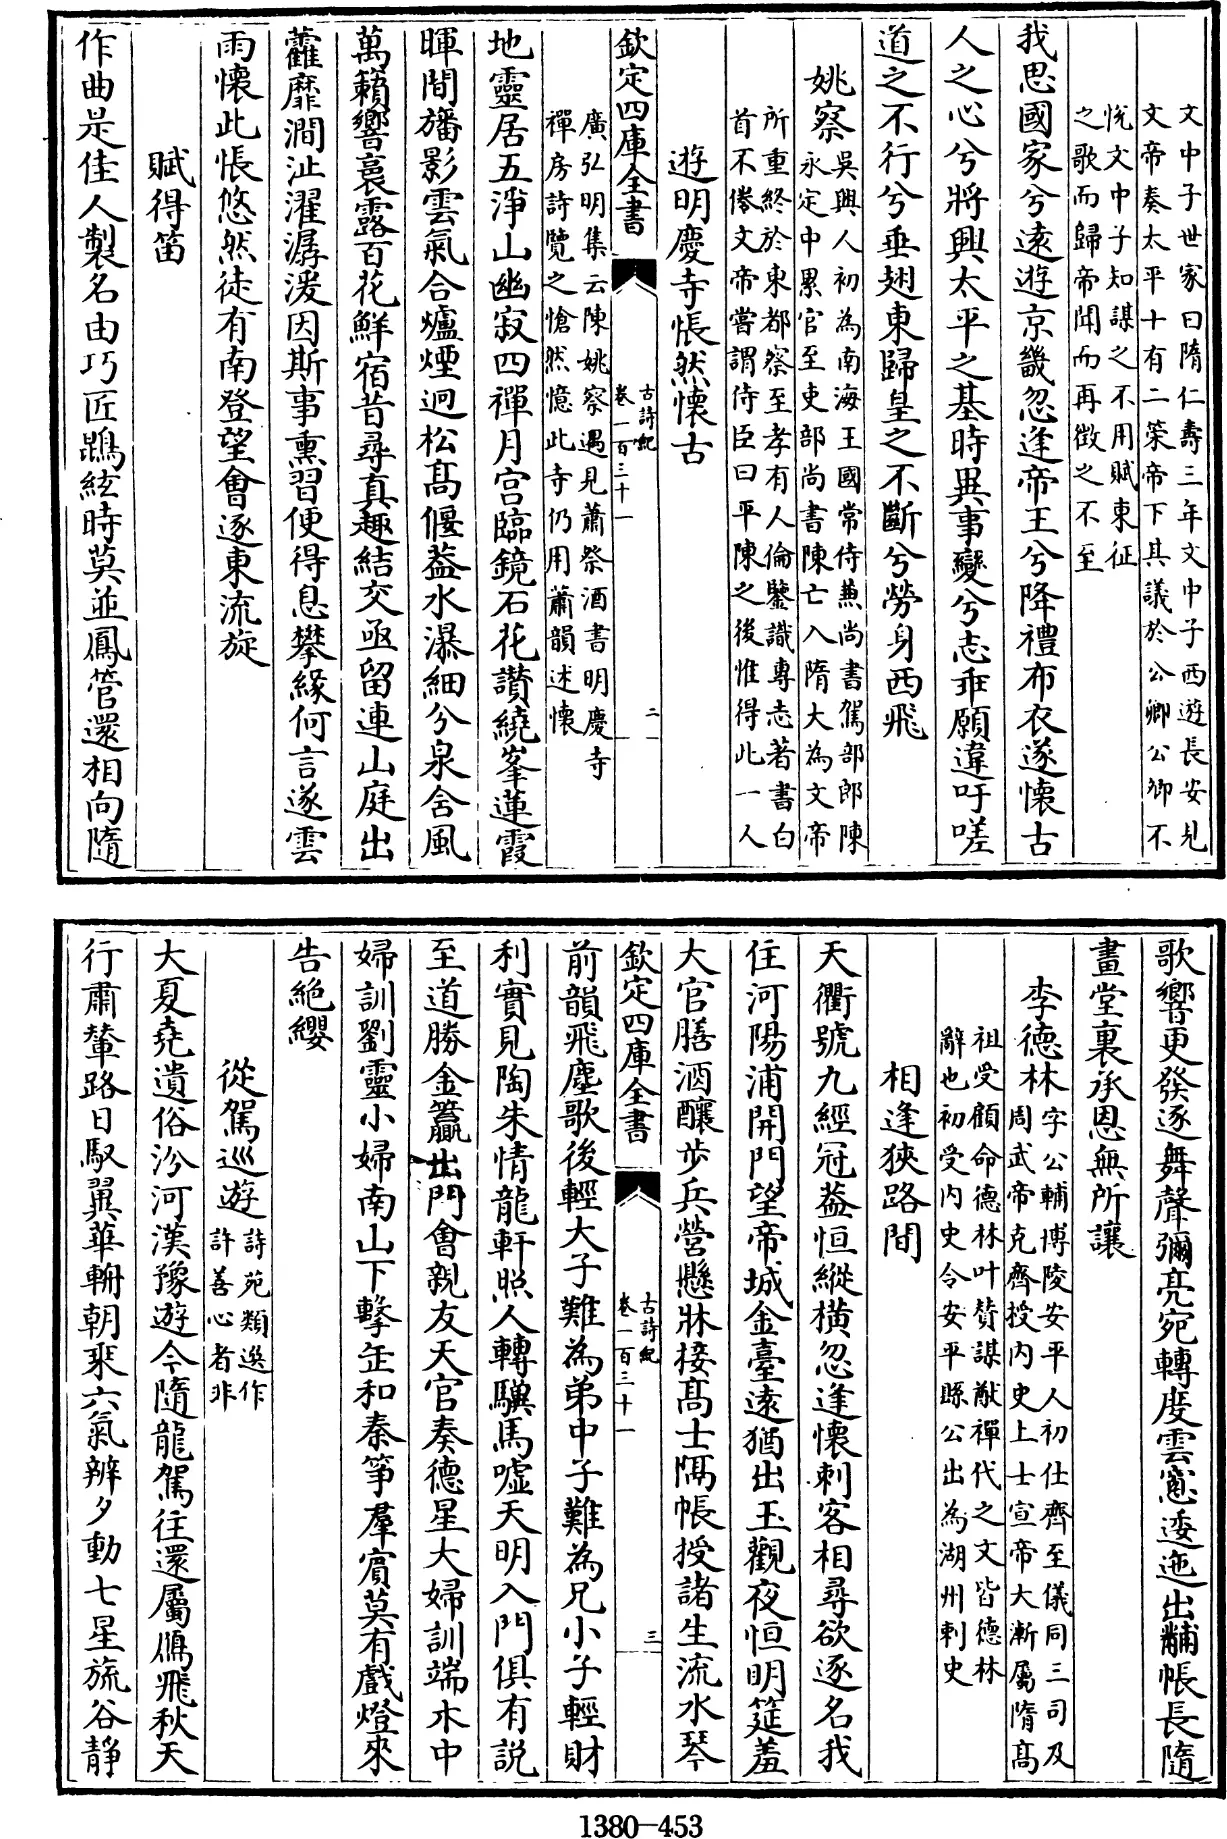 文中子世家曰隋仁壽三年文中子西遊長安見
文帝奏太平十有二策帝下其議於公卿公卿不
悅文中子知謀之不用賦東征
之歌而歸帝聞而再徵之不至
我思國家兮遠遊京畿忽逢帝王兮降禮布衣遂懷古
人之心兮將興太平之基時異事變兮志乖願違吁嗟
道之不行兮垂翅東歸皇之不斷兮勞身西飛
姚察
吳興人初為南海王國常侍兼尚書駕部郎陳
永定中累官至吏部尚書陳亡入隋大為文帝
所重終於東都察至孝有人倫鑒識專志著書白
首不倦文帝嘗謂侍臣曰平陳之後惟得此一人
遊明慶寺悵然懷古
欽定四庫全書
古詩紀
卷一百三十一
二
廣弘明集云陳姚察遇見蕭祭酒書明慶寺
禪房詩覽之愴然憶此寺仍用蕭韻述懷
地靈居五淨山幽寂四禪月宮臨鏡石花讚繞峯蓮霞
暉間旛影雲氣合爐煙迥松髙偃葢水瀑細分泉含風
萬籟響裛露百花鮮宿昔尋真趣結交亟留連山庭出
藿靡澗沚濯潺湲因斯事熏習便得息攀緣何言遂雲
雨懷此悵悠然徒有南登望會逐東流旋
賦得笛
作曲是佳人製名由巧匠鵾絃時莫並鳳管還相向隨
歌響更發逐舞聲彌亮宛轉度雲窻逶迤出黼帳長隨
畫堂裏承恩無所讓
李德林
字公輔博陵安平人初仕齊至儀同三司及
周武帝克齊授内史上士宣帝大漸屬隋髙
祖受顧命德林叶賛謀猷禪代之文皆德林
辭也初受内史令安平縣公出為湖州刺史
相逢狹路間
天衢號九經冠葢恒縱横忽逢懷刺客相尋欲逐名我
住河陽浦開門望帝城金臺遠猶出玉觀夜恒明筵羞
大官膳酒釀步兵營懸牀接髙士隔帳授諸生流水琴
欽定四庫全書
古詩紀
卷一百三十一
三
前韻飛塵歌後輕大子難為弟中子難為兄小子輕財
利實見陶朱情龍軒照人轉驥馬嘘天明入門俱有説
至道勝金籯出門會親友天官奏德星大婦訓端木中
婦訓劉靈小婦南山下擊缶和秦箏羣賓莫有戲燈來
告絶纓
從駕巡遊
詩苑類選作
許善心者非
大夏堯遺俗汾河漢豫遊今隨龍駕往還屬鴈飛秋天
行肅輦路日馭翼華輈朝乘六氣辨夕動七星旒谷靜
1380—453